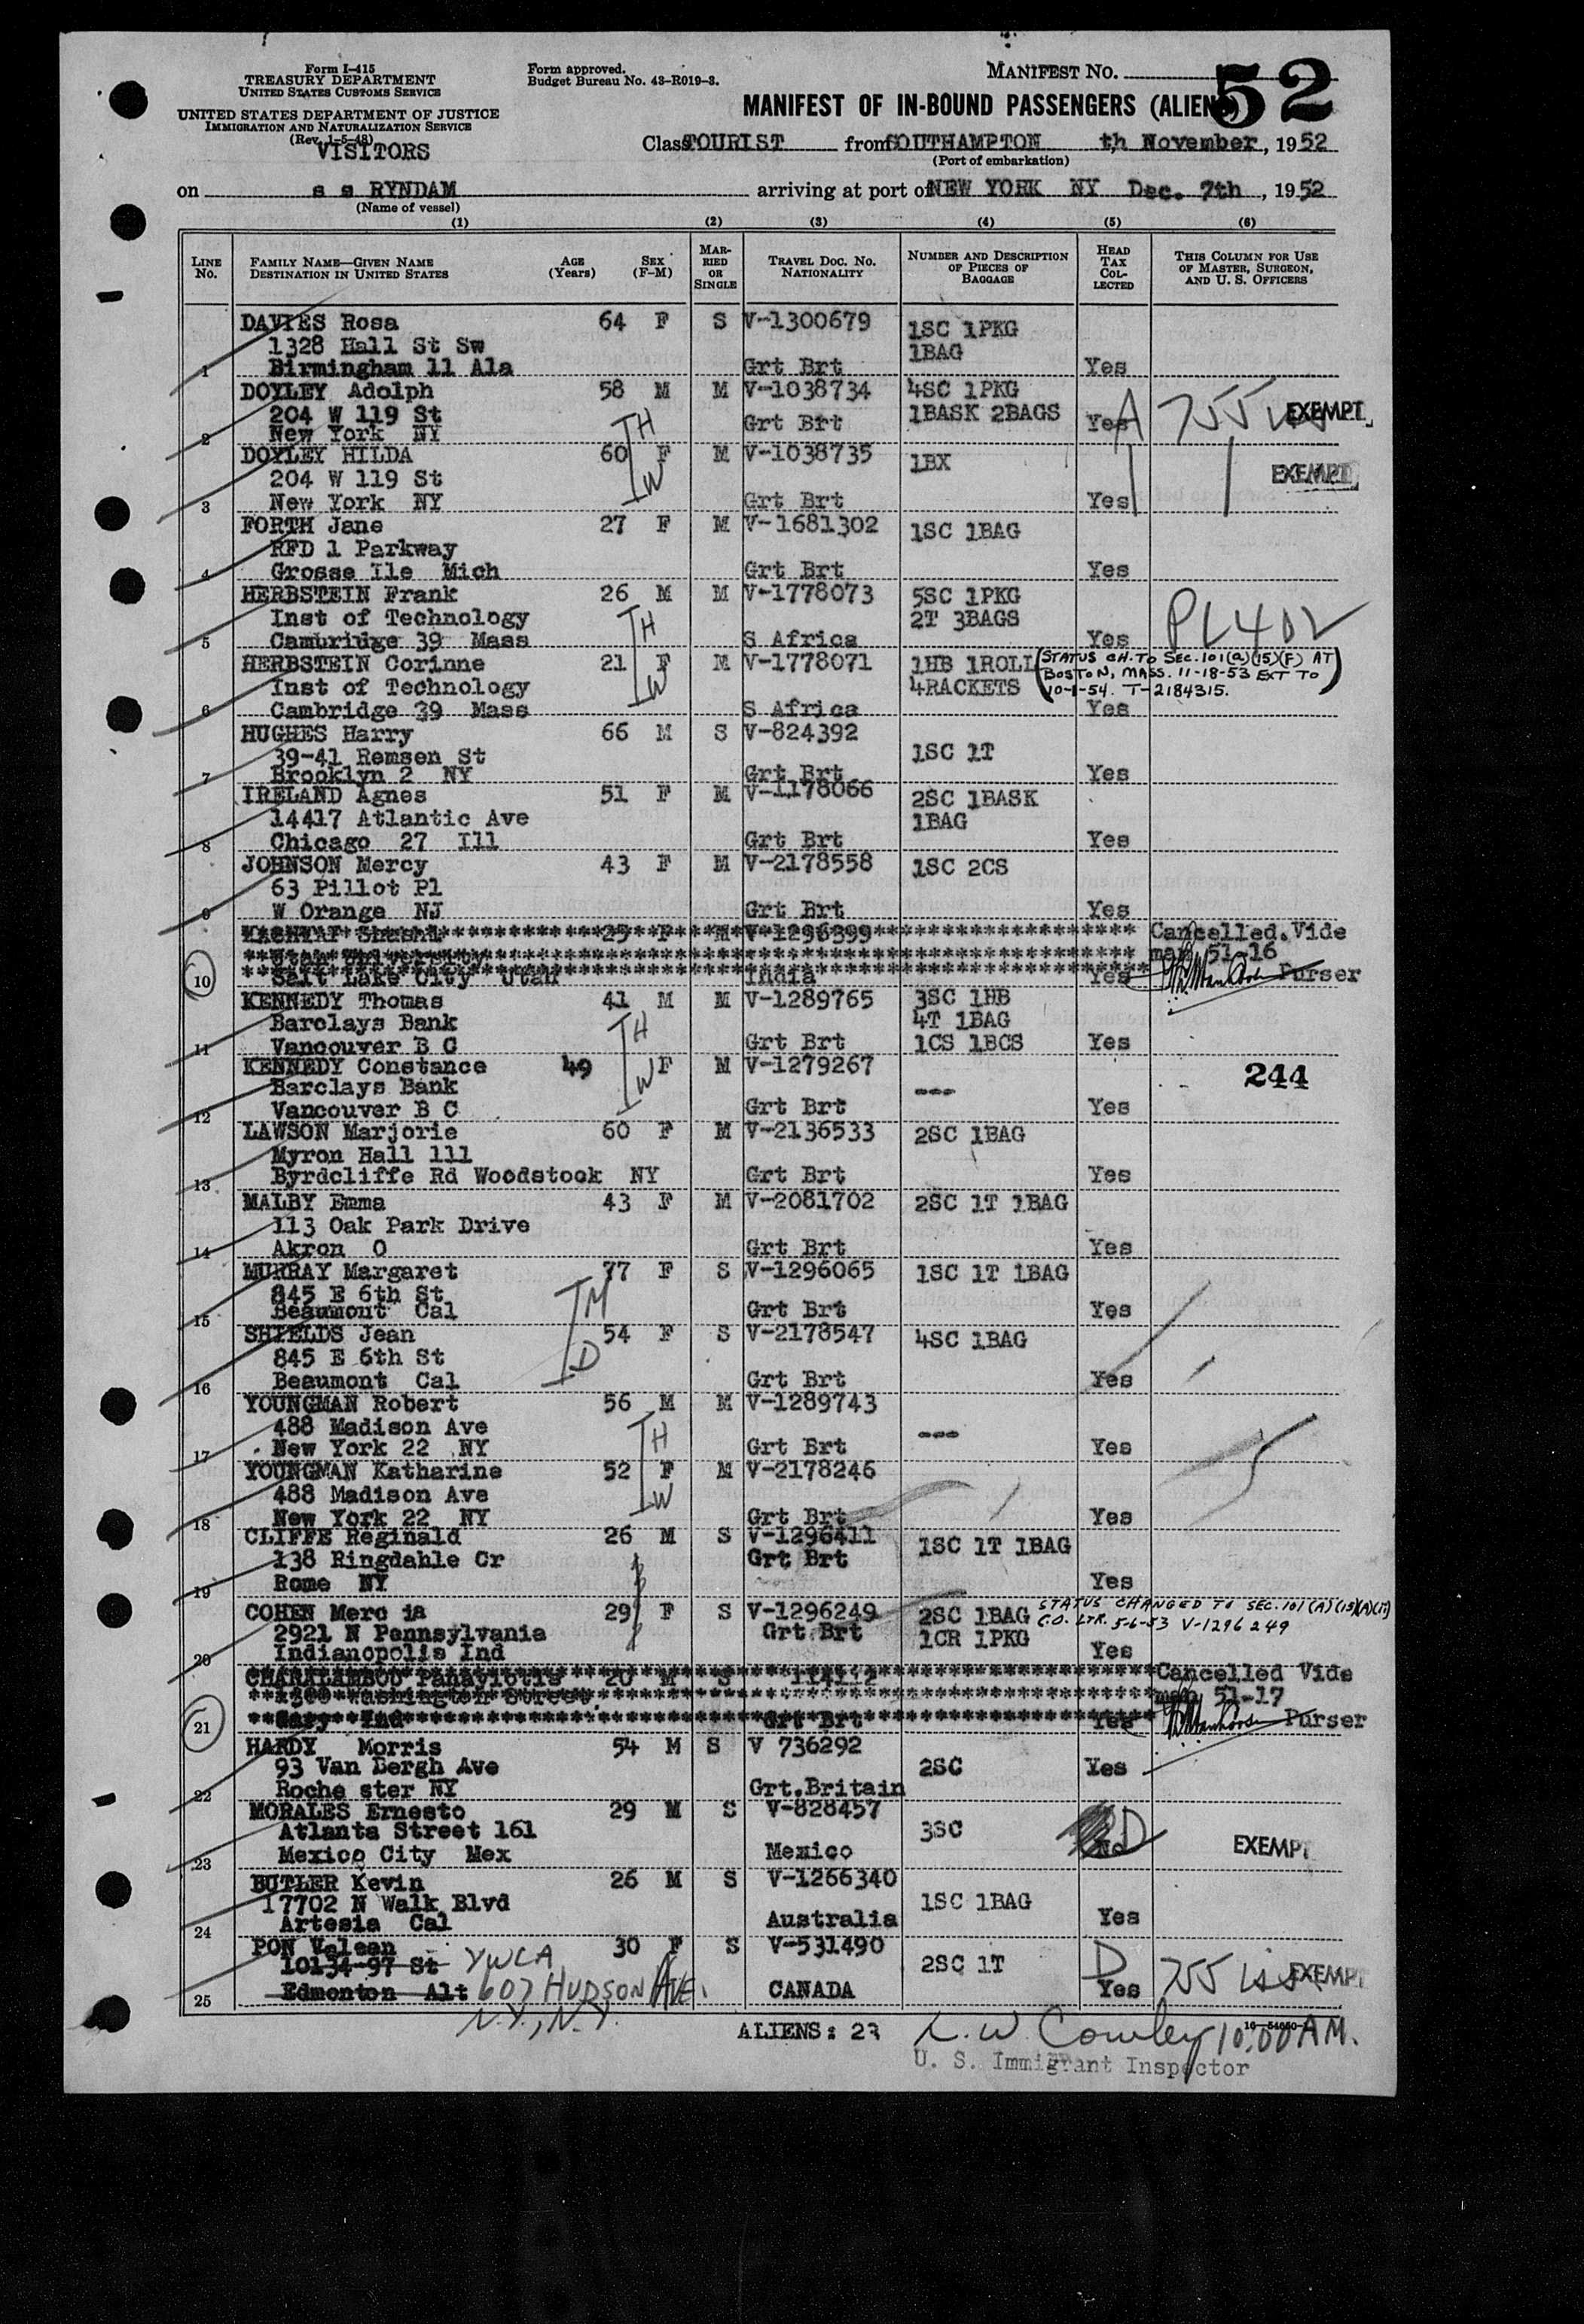 Form I-415
TREASURY DEPARTMENT
UNITED STATES CUSTOMS SERVICE
UNITED STATES DEPARTMENT OF JUSTICE
IMMIGRATION AND NATURALIZATION SERVICE
(Rev. 1-5-48)
VISITORS
Form approved.
Budget Bureau No. 43-R019-3.
MANIFEST NO. 52
MANIFEST OF IN-BOUND PASSENGERS (ALIENS)
Class TOURIST from SOUTHAMPTON th November, 1952
(Port of embarkation)
on s s RYNDAM arriving at port of NEW YORK NY Dec. 7th, 1952
(Name of vessel)
(1) (2) (3) (4) (5) (6)
LINE No. FAMILY NAME—GIVEN NAME DESTINATION IN UNITED STATES AGE (Years) SEX (F-M) MARRIED OR SINGLE TRAVEL DOC. NO. NATIONALITY NUMBER AND DESCRIPTION OF PIECES OF BAGGAGE HEAD TAX COLLECTED THIS COLUMN FOR USE OF MASTER, SURGEON, AND U. S. OFFICERS
DAVIES Rosa 64 F S V-1300679 1SC 1PKG
1328 Hall St Sw 1BAG
1 Birmingham 11 Ala Grt Brt Yes
DOYLEY Adolph 58 M M V-1038734 4SC 1PKG
204 W 119 St H Grt Brt 1BASK 2BAGS Yes A 755 EXEMPT
2 New York NY
DOYLEY HILDA 60 F M V-1038735 1BX
204 W 119 St W EXEMPT
3 New York NY Grt Brt Yes
FORTH Jane 27 F M V-1681302 1SC 1BAG
RFD 1 Parkway
4 Grosse Ile Mich Grt Brt Yes
HERBSTEIN Frank 26 M M V-1778073 5SC 1PKG
Inst of Technology H 2T 3BAGS PL 402
5 Cambridge 39 Mass S Africa Yes
HERBSTEIN Corinne 21 F M V-1778071 1HB 1ROLL (STATUS CH. TO SEC. 101(a)(15)(F) AT
Inst of Technology W 4RACKETS BOSTON, MASS. 11-18-53 EXT TO
10-1-54. T-2184315.)
6 Cambridge 39 Mass S Africa Yes
HUGHES Harry 66 M S V-824392
39-41 Remsen St 1SC 1T
7 Brooklyn 2 NY Grt Brt Yes
IRELAND Agnes 51 F M V-1178066 2SC 1BASK
14417 Atlantic Ave 1BAG
8 Chicago 27 Ill Grt Brt Yes
JOHNSON Mercy 43 F M V-2178558 1SC 2CS
63 Pillot Pl
9 W Orange NJ Grt Brt Yes
25 F M V-1296399 Cancelled. Vide
Utah University man 51-16
10 Salt Lake City Utah India Yes Purser
KENNEDY Thomas 41 M M V-1289765 3SC 1HB
Barclays Bank H 4T 1BAG
11 Vancouver B C Grt Brt 1CS 1BCS Yes
KENNEDY Constance 49 F M V-1279267 244
Barclays Bank W ---
12 Vancouver B C Grt Brt Yes
LAWSON Marjorie 60 F M V-2136533 2SC 1BAG
Myron Hall 111
13 Byrdcliffe Rd Woodstock NY Grt Brt Yes
MALBY Emma 43 F M V-2081702 2SC 1T 1BAG
113 Oak Park Drive
14 Akron O Grt Brt Yes
MURRAY Margaret 77 F S V-1296065 1SC 1T 1BAG
845 E 6th St M
15 Beaumont Cal Grt Brt Yes
SHIELDS Jean 54 F S V-2178547 4SC 1BAG
845 E 6th St D
16 Beaumont Cal Grt Brt Yes
YOUNGMAN Robert 56 M M V-1289743
488 Madison Ave H ---
17 New York 22 NY Grt Brt Yes
YOUNGMAN Katharine 52 F M V-2178246
488 Madison Ave W
18 New York 22 NY Grt Brt Yes
CLIFFE Reginald 26 M S V-1296411 1SC 1T 1BAG
138 Ringdahle Cr Grt Brt
19 Rome NY Yes
COHEN Merc ia 29 F S V-1296249 2SC 1BAG STATUS CHANGED TO SEC. 101(A)(15)(A)(ii)
2921 N Pennsylvania Grt Brt 1CR 1PKG C.O. LTR. 5-6-53 V-1296249
20 Indianopolis Ind Yes
CHARALAMBOS Panayiotis 20 M S Cancelled Vide
1300 Washington Street man 51-17
21 Gary Ind Grt Brt Yes Purser
HARDY Morris 54 M S V 736292
93 Van Bergh Ave 2SC Yes
22 Roche ster NY Grt.Britain
MORALES Ernesto 29 M S V-828457
Atlanta Street 161 3SC D EXEMPT
23 Mexico City Mex Mexico
BUTLER Kevin 26 M S V-1266340
17702 N Walk Blvd 1SC 1BAG
24 Artesia Cal Australia Yes
PON Veleen 30 F S V-531490
10134-97 St YWCA 2SC 1T D 755 EXEMPT
25 Edmonton Alt 607 HUDSON AVE. CANADA Yes
N.Y., N.Y.
ALIENS: 23 L. W. Cowley 10:00 AM.
U. S. Immigrant Inspector